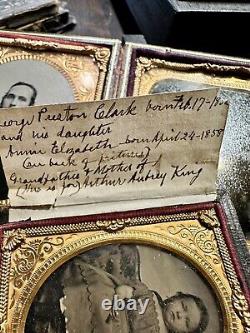 George Preston Clark born Feb. 17-18
and his daughter
Annie Elizabeth born April 24-1858
(on back of picture)
Grandfather & Mother of
(this is for) Arthur Aubrey King